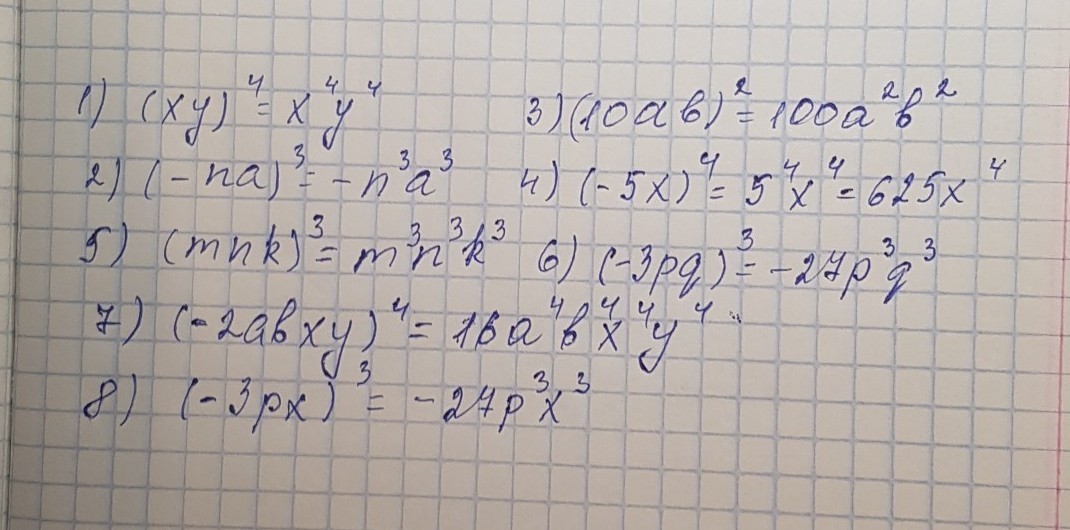 1) (xy)⁴ = x⁴y⁴ 3) (10ав)² = 100а²в²
2) (-na)³ = -n³a³ 4) (-5x)⁴ = 5⁴x⁴ = 625x⁴
5) (mnk)³ = m³n³k³ 6) (-3pq)³ = -27p³q³
7) (-2авxy)⁴ = 16а⁴в⁴x⁴y⁴
8) (-3px)³ = -27p³x³